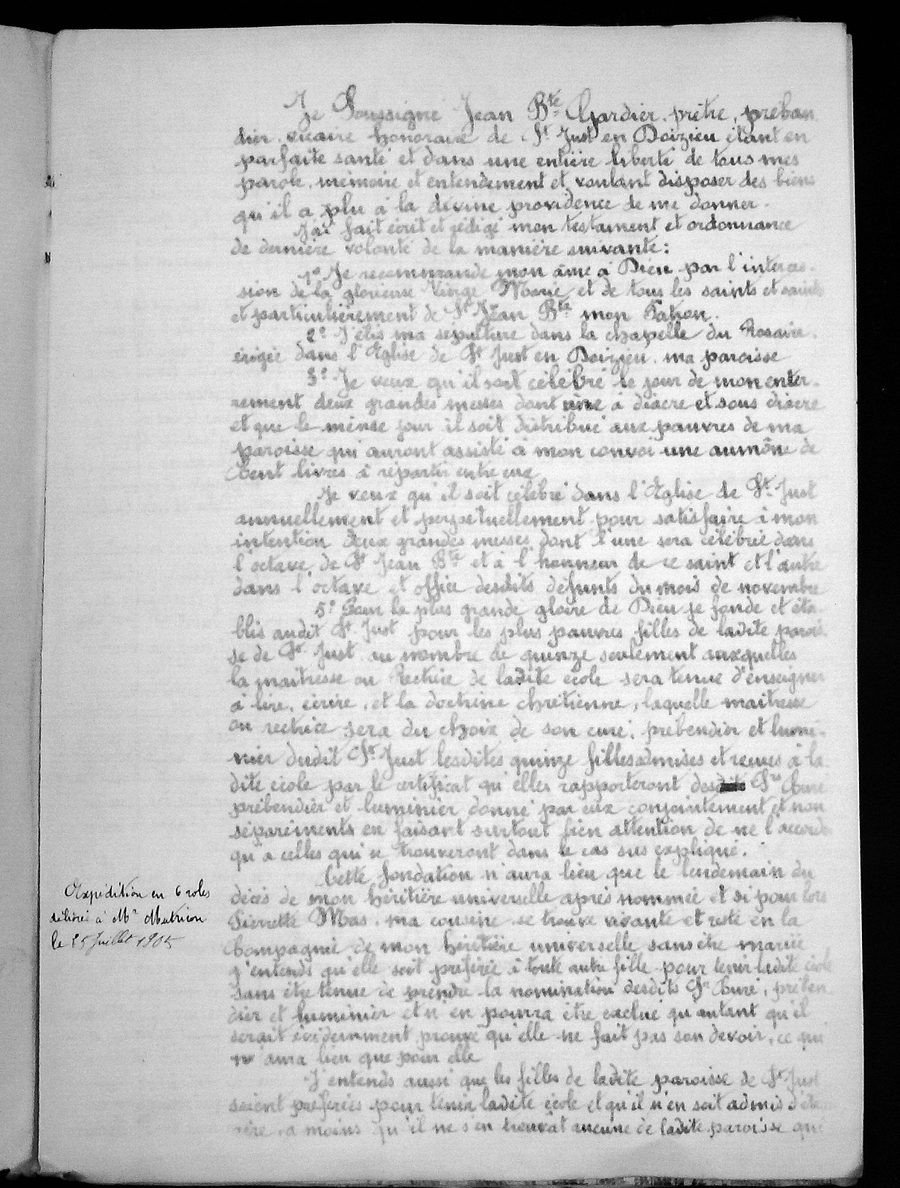 Je Soussigné Jean Bte Gardier, prêtre, preban
dier, vicaire honoraire de St Just en Doizieu étant en
parfaite santé et dans une entière liberté de tous mes
parole, mémoire et entendement et voulant disposer des biens
qu'il a plu à la divine providence de me donner.
J'ai fait écrit et rédigé mon testament et ordonnance
de dernière volonté de la manière suivante:
1º Je recommande mon âme à Dieu par l'interces-
sion de la glorieuse Vierge Marie et de tous les saints et saintes
et particulièrement de St Jean Bte mon Patron.
2º J'élis ma sépulture dans la chapelle du Rosaire.
érigée dans l'Eglise de St Just en Doizieu. ma paroisse
3º Je veux qu'il soit célébré le jour de mon enter-
rement deux grandes messes dont une à diacre et sous diacre
et que le même jour il soit distribué aux pauvres de ma
paroisse qui auront assisté à mon convoi une aumône de
Cent livres à répartir entre eux
Je veux qu'il soit célébré dans l'Eglise de St Just
annuellement et perpetuellement pour satisfaire à mon
intention deux grandes messes dont l'une sera célébrée dans
l'octave de St Jean Bte et à l'honneur de ce saint et l'autre
dans l'octave et office desdits défunts du mois de novembre
5º Pour la plus grande gloire de Dieu je fonde et éta-
blis audit St Just pour les plus pauvres filles de ladite parois-
se de St Just au nombre de quinze seulement auxquelles
la maitresse ou Rectrice de ladite école sera tenue d'enseigner
à lire, écrire, et la doctrine chrétienne, laquelle maitresse
ou rectrice sera du choix de son curé, prébendier et lumi-
nier dudit St Just lesdites quinze filles admises et reçues à la
dite école par le certificat qu'elles rapporteront des Srs Curé
prébendier et luminier donné par eux conjointement et non
séparéments en faisant surtout bien attention de ne l'accorder
qu'a celles qui se trouveront dans le cas sus expliqué.
Cette fondation n'aura lieu que le lendemain du
décès de mon héritière universelle après nommée et si pour lors
Pierrette Mas, ma cousine se trouve vivante et reste en la
Compagnie de mon héritière universelle sans être mariée
j'entends qu'elle soit préférée à toute autre fille pour tenir ladite école
sans être tenue de prendre la nomination desdits Srs Curé, prében
dier et luminier et n'en pourra être exclue qu'autant qu'il
serait évidemment prouvé qu'elle ne fait pas son devoir, ce qui
n'aura lieu que pour elle
J'entends aussi que les filles de ladite paroisse de St Just
soient préférées pour tenir ladite école et qu'il n'en soit admis d'étran
gère à moins qu'il ne s'en trouvat aucune de ladite paroisse qui
Expédition en 6 roles
délivré à Me
le 25 Juillet 1905